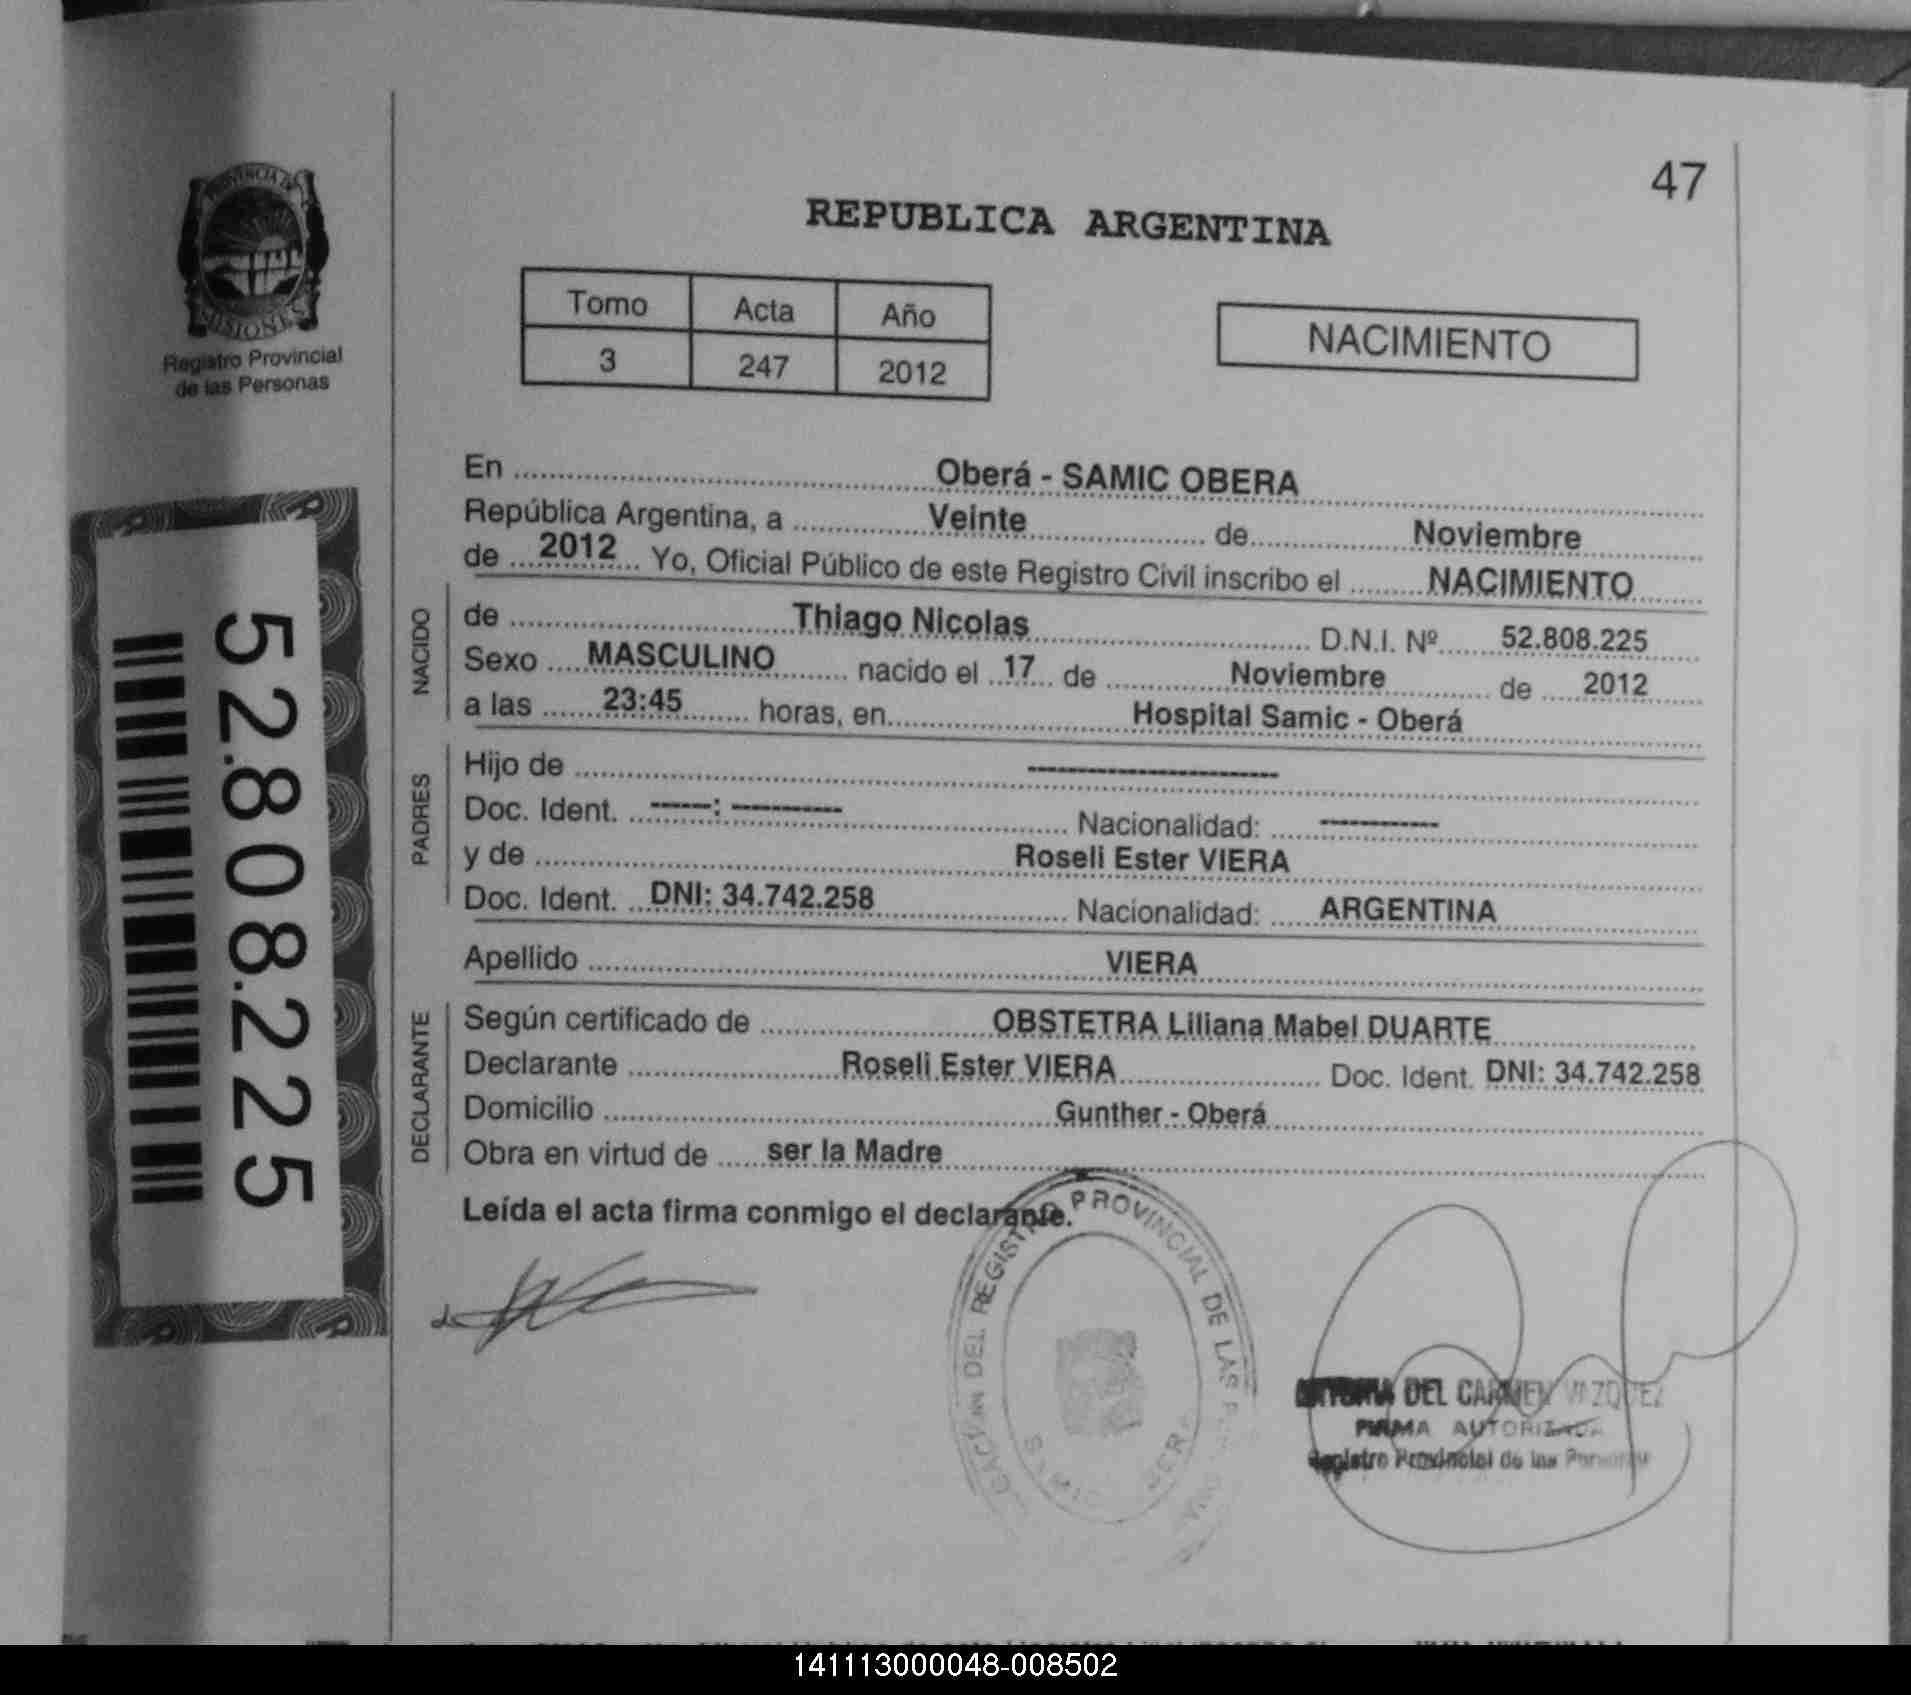 47
REPUBLICA ARGENTINA
PROVINCIA DE
MISIONES
Registro Provincial
de las Personas
Tomo Acta Año
3 247 2012
NACIMIENTO
52.808.225
En Oberá - SAMIC OBERA
República Argentina, a Veinte de Noviembre
de 2012 Yo, Oficial Público de este Registro Civil inscribo el NACIMIENTO
NACIDO
de Thiago Nicolas D.N.I. Nº 52.808.225
Sexo MASCULINO nacido el 17 de Noviembre de 2012
a las 23:45 horas, en Hospital Samic - Oberá
PADRES
Hijo de -----------------------
Doc. Ident. ------: ----------- Nacionalidad: ------------
y de Roseli Ester VIERA
Doc. Ident. DNI: 34.742.258 Nacionalidad: ARGENTINA
Apellido VIERA
DECLARANTE
Según certificado de OBSTETRA Liliana Mabel DUARTE
Declarante Roseli Ester VIERA Doc. Ident. DNI: 34.742.258
Domicilio Gunther - Oberá
Obra en virtud de ser la Madre
Leída el acta firma conmigo el declarante.
DEL REGISTRO PROVINCIAL DE LAS
DEL CARMEN VAZQUEZ
FIRMA AUTORIZADA
Registro Provincial de las Personas
141113000048-008502